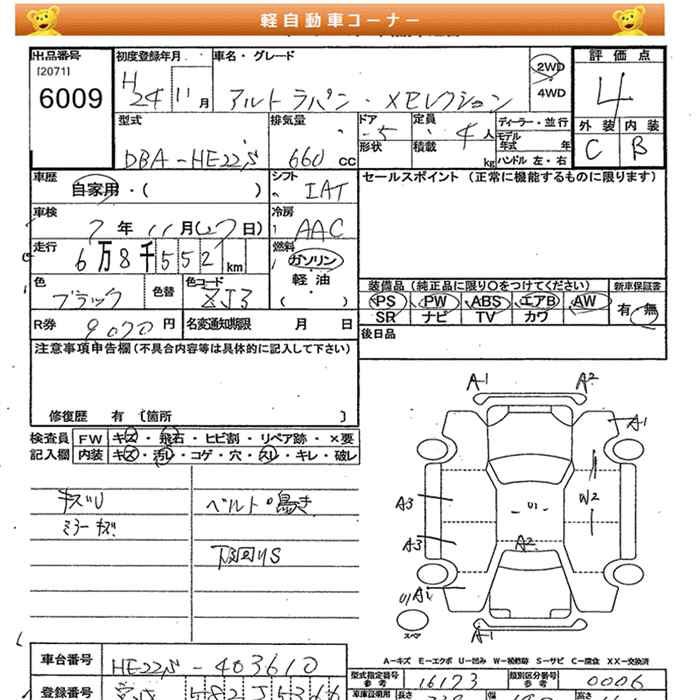 軽自動車コーナー
出品番号 初度登録年月 車名・グレード 評価点
[2071] H 2WD
6009 24 11月 アルトラパン・Xセレクション 4WD 4
型式 排気量 ドア 定員 ディーラー・並行 外装 内装
DBA-HE22S 660cc 5 4人 モデル年式 年 C B
形状 積載 kg ハンドル 左・右
車歴 シフト セールスポイント (正常に機能するものに限ります)
自家用・( ) IAT
車検 冷房
7年11月(27日) AAC
走行 燃料
6万8千552km ガソリン
軽油
色 色替 色コード ( )
ブラック ZJ3
装備品 (純正品に限り○をつけてください) 新車保証書
PS PW ABS エアB AW 有・無
SR ナビ TV カワ
R券 9070円 名変通知期限 月 日
後日品
注意事項申告欄 (不具合内容等は具体的に記入して下さい)
修復歴 有 〔箇所 〕
検査員 FW キズ・飛石・ヒビ割・リペア跡・×要
記入欄 内装 キズ・汚レ・コゲ・穴・スレ・キレ・破レ
キズU ベルト鳴き
ミラーキズ
下回りS
A1 A2
A1
A3 U1 W2
A3 A2
U1 A1
スペア
A1
A-キズ E-エクボ U-凹み W-補修跡 S-サビ C-腐食 XX-交換済
車台番号 HE22S-403610
型式指定番号 参考 16173 類別区分番号 参考 0006
登録番号 582
車庫証明用 長さ 幅 高さ